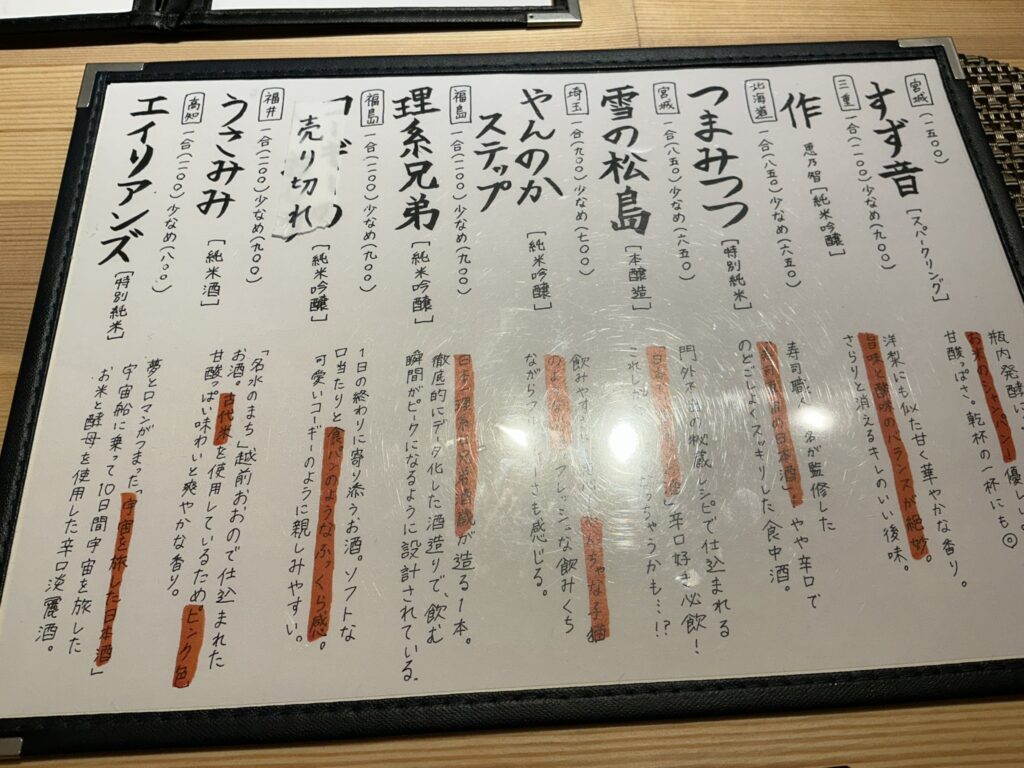 宮城
(一五〇〇)
すず音
[スパークリング]
瓶内発酵
お米のシャンパン 優しい
甘酸っぱさ。乾杯の一杯にも◎
三重
一合(一二〇〇)少なめ(九〇〇)
作 恵乃智[純米吟醸]
洋梨にも似た甘く華やかな香り。
旨味と酸味のバランスが絶妙。
さらりと消えるキレのいい後味。
北海道
一合(八五〇)少なめ(六五〇)
つまみつつ
[特別純米]
寿司職人 名が監修した
専用の日本酒」やや辛口で
のどごしよくスッキリした食中酒。
宮城
一合(八五〇)少なめ(六五〇)
雪の松島
[本醸造]
門外不出の秘蔵レシピで仕込まれる
辛口好き必飲！
これしか ちゃうかも…!?
埼玉
一合(九〇〇)少なめ(七〇〇)
やんのか
ステップ
[純米吟醸]
飲みやす やんちゃな子猫
のような フレッシュな飲みくち
ながら さも感じる。
福島
一合(一二〇〇)少なめ(九〇〇)
理系兄弟
[純米吟醸]
日本一理系な兄弟酒蔵が造る1本。
徹底的にデータ化した酒造りで、飲む
瞬間がピークになるように設計されている。
福島
一合(一二〇〇)少なめ(九〇〇)
売り切れ
[純米吟醸]
1日の終わりに寄り添うお酒。ソフトな
口当たりと食パンのようなふっくら感。
可愛いコーギーのように親しみやすい。
福井
一合(一二〇〇)少なめ(九〇〇)
うさみみ
[純米酒]
「名水のまち」越前おおので仕込まれた
お酒。古代米を使用しているため。ピンク色
甘酸っぱい味わいと爽やかな香り。
高知
一合(一一〇〇)少なめ(八〇〇)
エイリアンズ
[特別純米]
夢とロマンがつまった「宇宙を旅した日本酒」
宇宙船に乗って10日間宇宙を旅した
お米と酵母を使用した辛口淡麗酒。